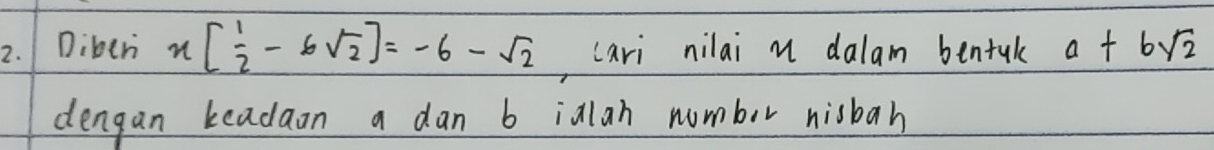 2. Diberi x [1/2 - 6√2] = -6 - √2, cari nilai x dalam bentuk a + b√2
dengan keadaan a dan b ialah nombor nisbah